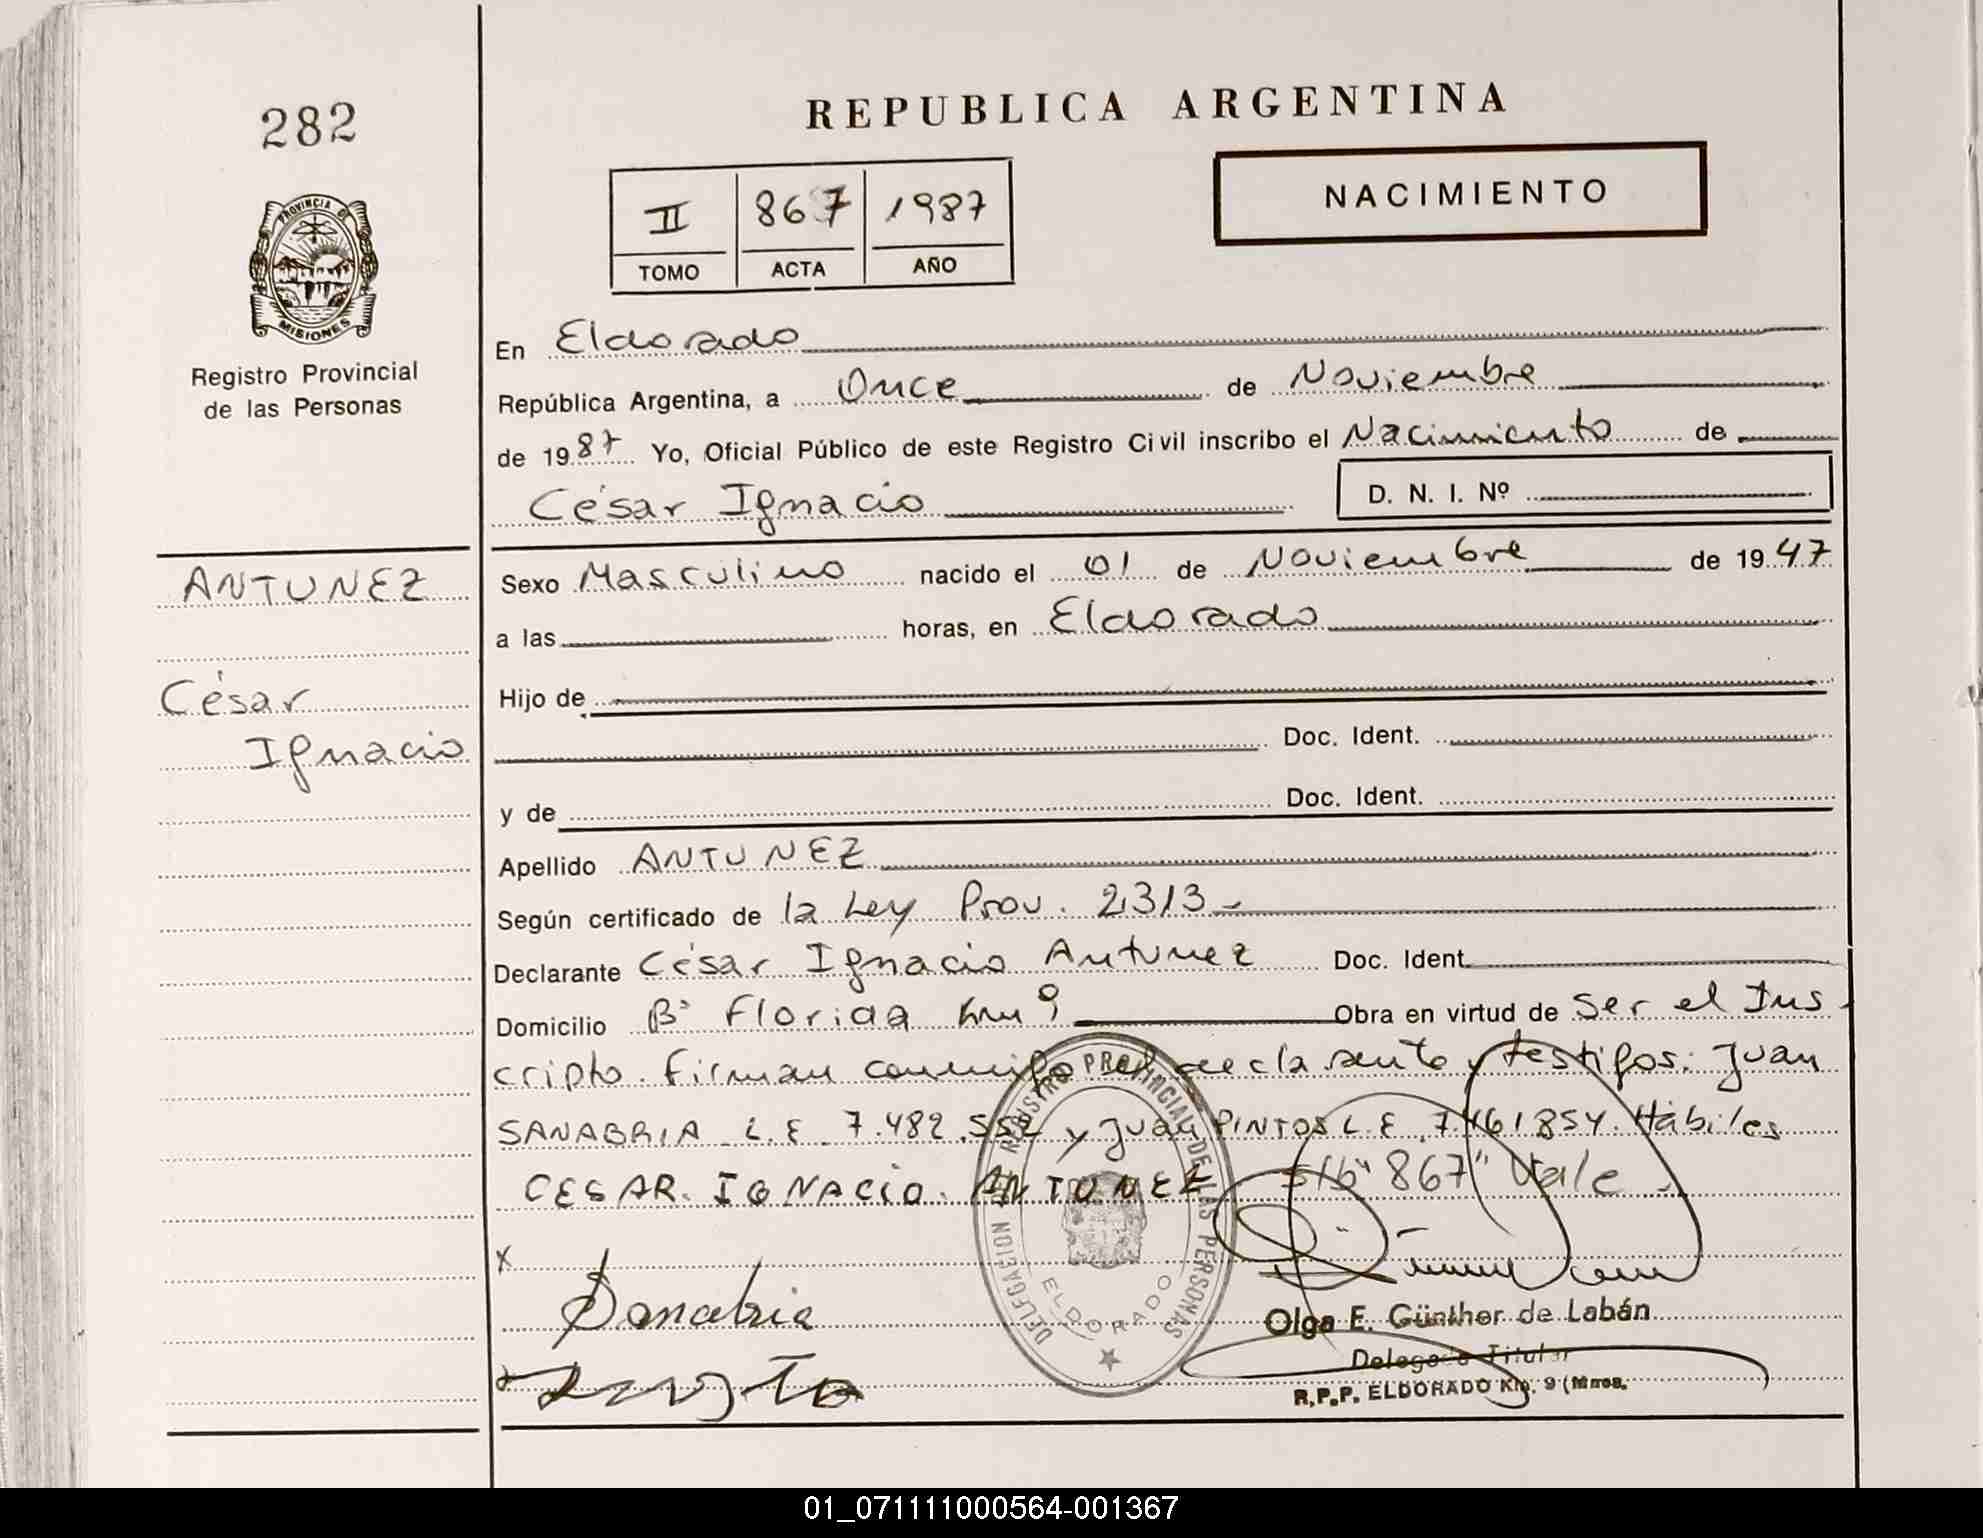 282
REPUBLICA ARGENTINA
NACIMIENTO
II 867 1987
TOMO ACTA AÑO
PROVINCIA DE
MISIONES
Registro Provincial
de las Personas
En Eldorado
República Argentina, a Once de Noviembre
de 1987 Yo, Oficial Público de este Registro Civil inscribo el Nacimiento de
César Ignacio D. N. I. Nº
ANTUNEZ
César
Ignacio
Sexo Masculino nacido el 01 de Noviembre de 1947
a las horas, en Eldorado
Hijo de
Doc. Ident.
y de Doc. Ident.
Apellido ANTUNEZ
Según certificado de la Ley Prov. 2313
Declarante César Ignacio Antunez Doc. Ident.
Domicilio Bº Florida km 9 Obra en virtud de Ser el Ins-
cripto. Firman conmigo el declarante y testigos: Juan
SANABRIA L.E. 7.482.552 y Juan PINTOS L.E. 7.461854. Hábiles
CESAR. IGNACIO. ANTUNEZ S/b "867" Vale
x
Sanabria
DELEGACION REGISTRO PROVINCIAL DE LAS PERSONAS
ELDORADO
Olga E. Günther de Labán
Delegada Titular
R.P.P. ELDORADO Km. 9 (Mnes.
01_071111000564-001367